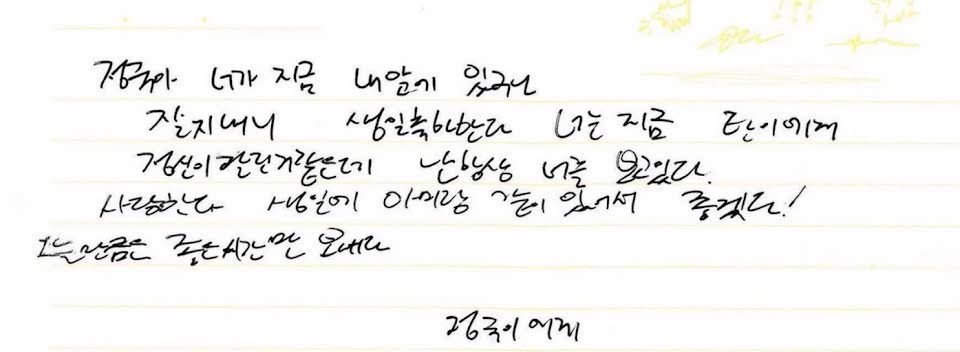 정국아 너가 지금 내앞에 있구나
잘지내니 생일축하한다 너는 지금 탄이에게
정신이 팔린거같은데 난항상 너를 보고있다.
사랑한다 생일에 아미랑 같이 있어서 좋겠다!
오늘만큼은 좋은시간만 보내라
정국이 에게